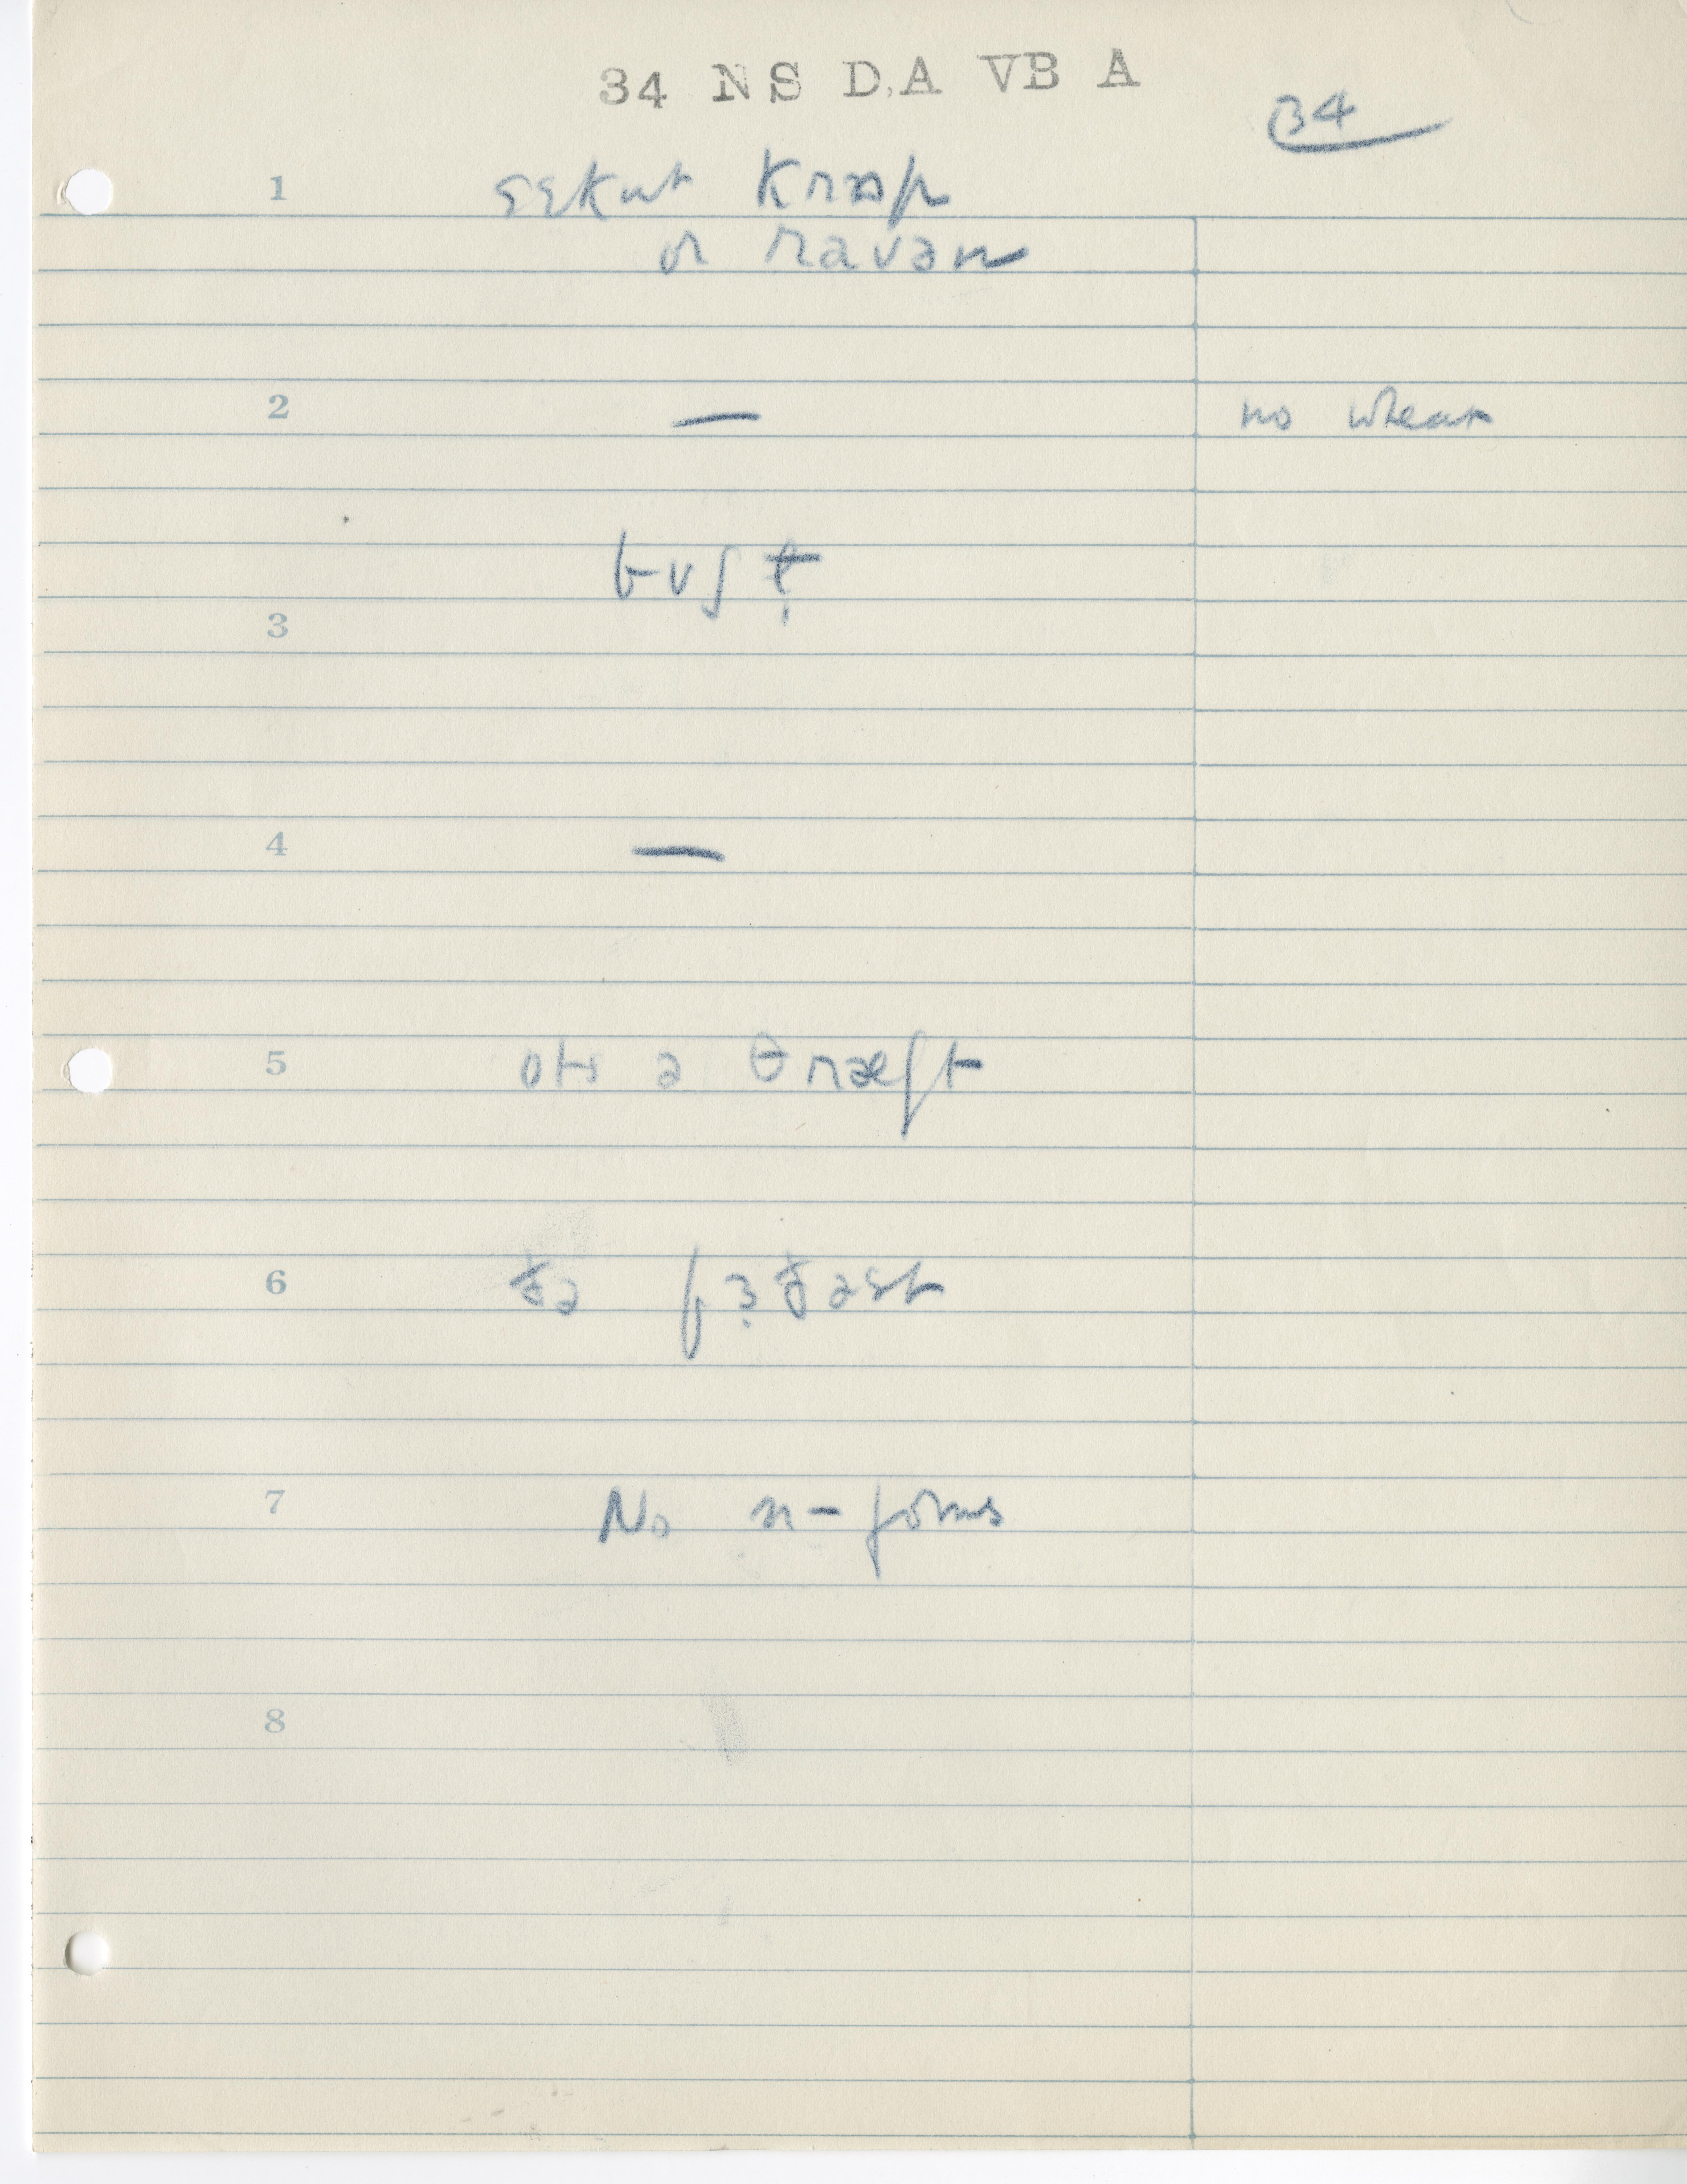 34 NS D.A VB A
34
1 sɛkut krɒp
or ravən
2 — no wheat
bʊʃt̬
3
4 —
5 ots ə θræʃt
6 ðə fɜ̣ðəst
7 No n-forms
8